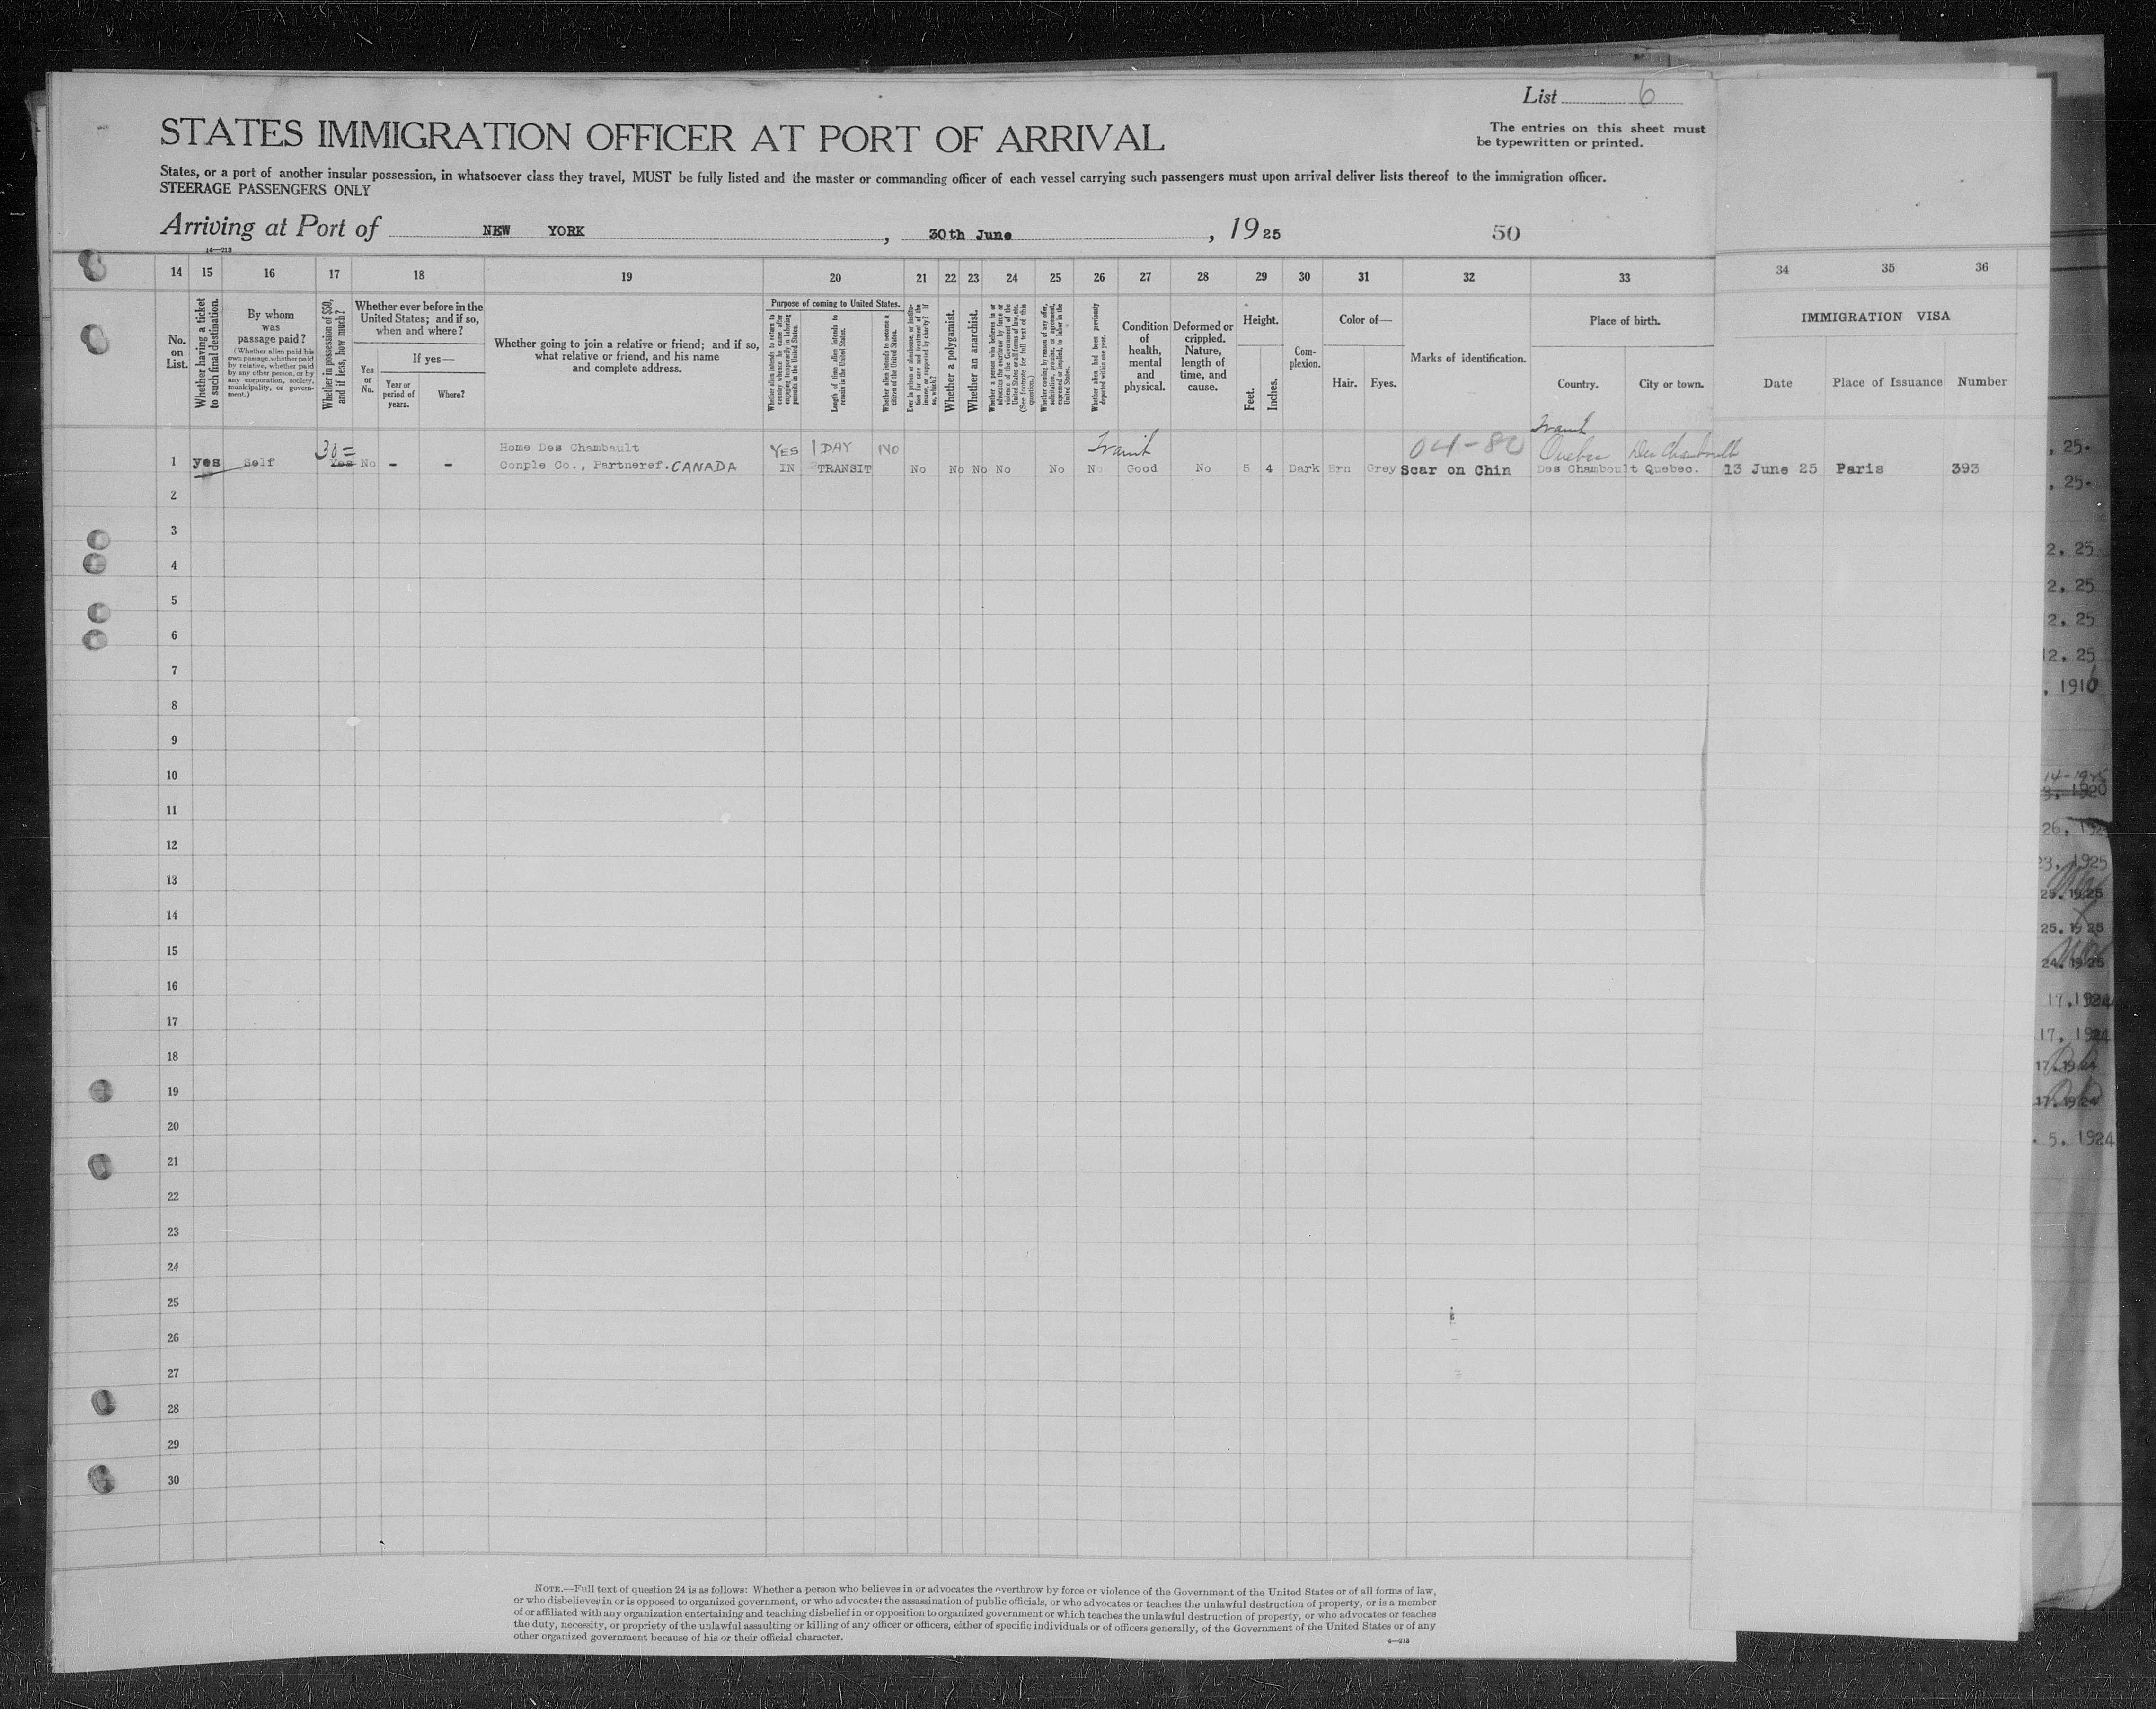 List 6
The entries on this sheet must
be typewritten or printed.
STATES IMMIGRATION OFFICER AT PORT OF ARRIVAL
States, or a port of another insular possession, in whatsoever class they travel, MUST be fully listed and the master or commanding officer of each vessel carrying such passengers must upon arrival deliver lists thereof to the immigration officer.
STEERAGE PASSENGERS ONLY
Arriving at Port of NEW YORK, 30th June, 1925 50
14—213
14 15 16 17 18 19 20 21 22 23 24 25 26 27 28 29 30 31 32 33 34 35 36
No.
on
List.
Whether having a ticket
to such final destination.
By whom
was
passage paid?
(Whether alien paid his
own passage, whether paid
by relative, whether paid
by any other person, or by
any corporation, society,
municipality, or govern-
ment.)
Whether in possession of $50,
and if less, how much?
Whether ever before in the
United States; and if so,
when and where?
Yes
or
No.
If yes—
Year or
period of
years.
Where?
Whether going to join a relative or friend; and if so,
what relative or friend, and his name
and complete address.
Purpose of coming to United States.
Whether alien intends to return to
country whence he came after
engaging temporarily in laboring
pursuits in the United States.
Length of time alien intends to
remain in the United States.
Whether alien intends to become a
citizen of the United States.
Ever in prison or almshouse, or institu-
tion for care and treatment of the
insane, or supported by charity? If
so, which?
Whether a polygamist.
Whether an anarchist.
Whether a person who believes in or
advocates the overthrow by force or
violence of the Government of the
United States or all forms of law, etc.
(See footnote for full text of this
question.)
Whether coming by reason of any offer,
solicitation, promise, or agreement,
expressed or implied, to labor in the
United States.
Whether alien had been previously
deported within one year.
Condition
of
health,
mental
and
physical.
Deformed or
crippled.
Nature,
length of
time, and
cause.
Height.
Feet.
Inches.
Com-
plexion.
Color of—
Hair.
Eyes.
Marks of identification.
Place of birth.
Country.
City or town.
IMMIGRATION VISA
Date
Place of Issuance
Number
Transit
30= Home Des Chambault YES 1 DAY NO Transit 04-80 Quebec Des Chamboult
1 yes Self Yes No - - Conple Co., Partneref. CANADA IN TRANSIT No No No No No No Good No 5 4 Dark Brn Grey Scar on Chin Des Chamboult Quebec. 13 June 25 Paris 393
2
3
4
5
6
7
8
9
10
11
12
13
14
15
16
17
18
19
20
21
22
23
24
25
26
27
28
29
30
, 25.
, 25.
2, 25
2, 25
2, 25
12, 25
, 1916
14-1925
3, 1920
26, 192
23, 1925
25. 1925
25. 1925
24. 1925
17, 1924
17, 1924
17. 1924
17. 1924
. 5, 1924
NOTE.—Full text of question 24 is as follows: Whether a person who believes in or advocates the overthrow by force or violence of the Government of the United States or of all forms of law,
or who disbelieves in or is opposed to organized government, or who advocates the assassination of public officials, or who advocates or teaches the unlawful destruction of property, or is a member
of or affiliated with any organization entertaining and teaching disbelief in or opposition to organized government or which teaches the unlawful destruction of property, or who advocates or teaches
the duty, necessity, or propriety of the unlawful assaulting or killing of any officer or officers, either of specific individuals or of officers generally, of the Government of the United States or of any
other organized government because of his or their official character.
4—213